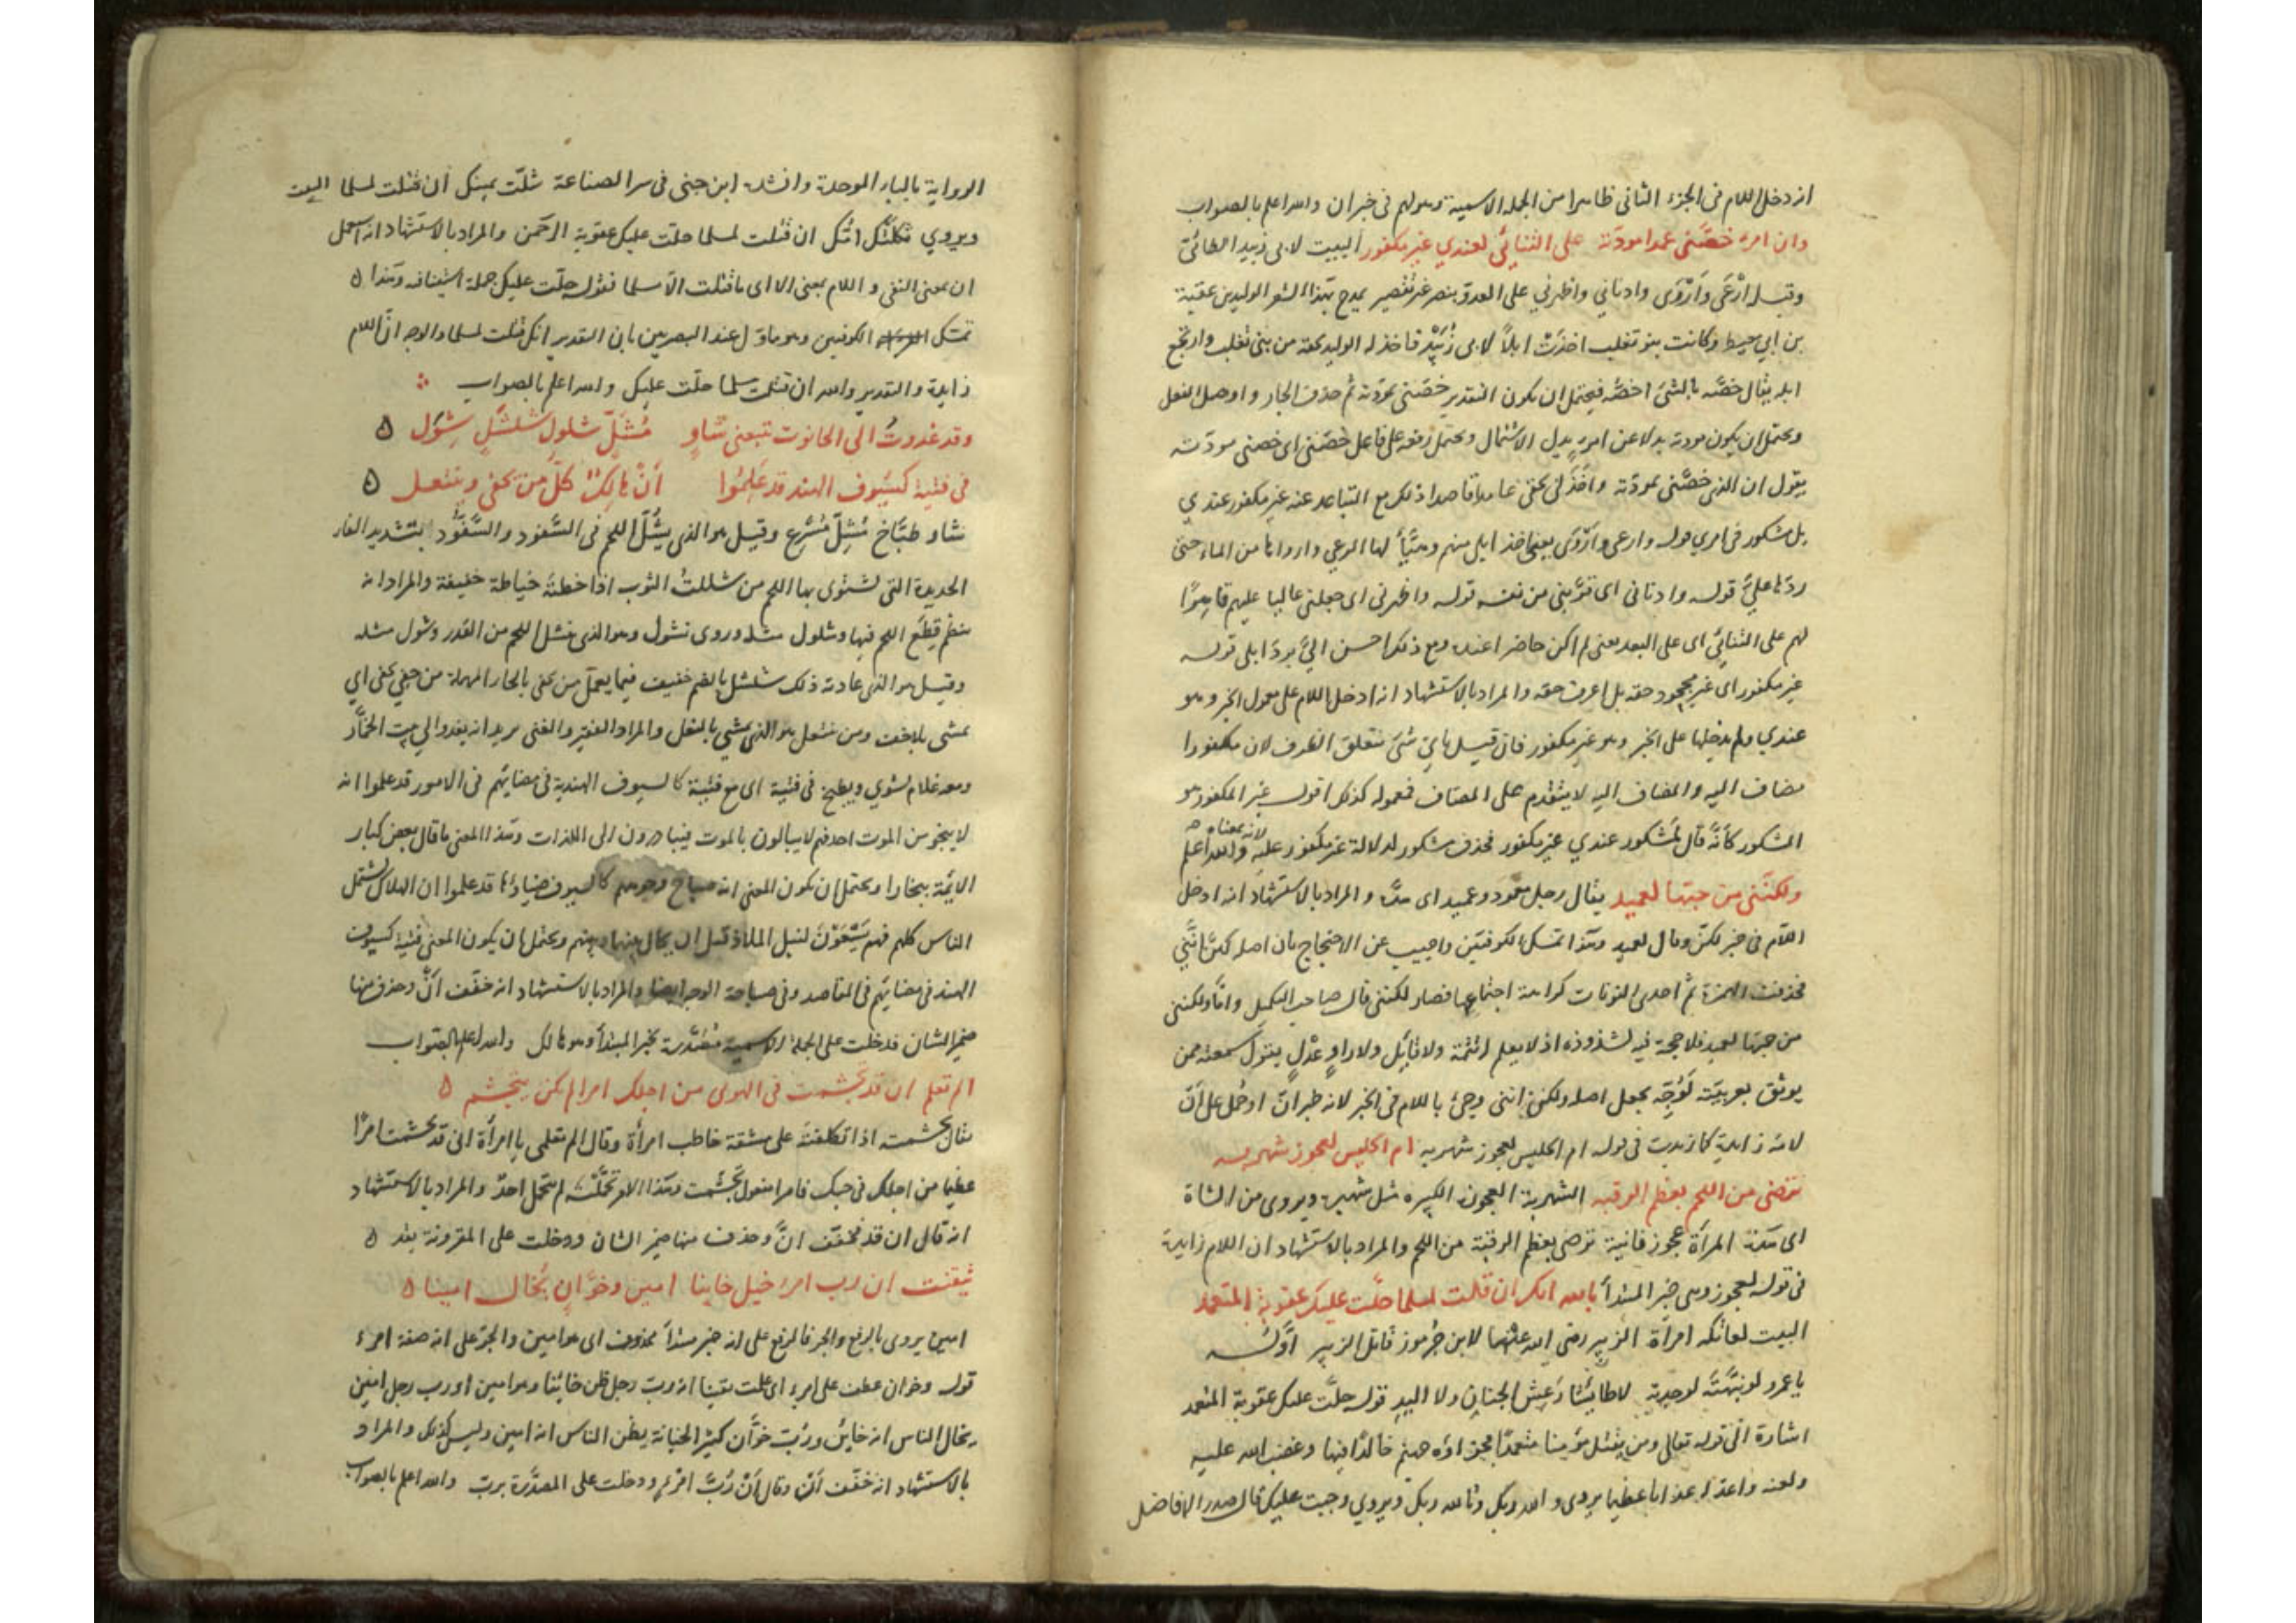 انه دخل اللام فى الجزء الثانى ظاهرا من الجملة الاسمية وهولهم فى خبر ان والله اعلم بالصواب
وان امرء خصّنى عمدا مودّته على التنائى لعندي غير مكفور البيت لابى زبيد الطائىّ
وقبله ارْعَى وَارْوَى وادناني واظهرني على العدوّ بنصر غير تقصير يمدح بهذا الشعر الوليد بن عقبة
بن ابي معيط وكانت بنو تغلب اخذت ابلاً لابى زُبَيْد فاخذ له الوليد بحقه من بنى تغلب وارتجع
ابله يقال خصّه بالشئ اخصّه فيحتمل ان يكون التقدير خصّنى بمودّته ثم حذف الجار واوصل الفعل
ويحتمل ان يكون مودته بدلا عن امرء بدل الاشتمال ويحتمل رفعه على فاعل خصّنى اى خصنى مودّته
يقول ان الذى خصّنى بمودّته واخذ لى بحقى عامدا قاصدا ذلك مع التباعد عنه غير مكفور عندي
بل مشكور فى امري قوله وارعى واَرْوَى يعنى اخذ ابلى منهم وهيّأ لها الرعى وارواها من الماء حتى
ردّها علىّ قوله وادنانى اى قرّبنى من نفسه قوله واظهرنى اى جعلنى عاليا عليهم قاهرًا
لهم على التنائى اى على البعد يعنى لم اكن حاضرا عنده ومع ذلك احسن الىّ بردّ ابلى قوله
غير مكفور اى غير مجحود حقه بل اعرف حقه والمراد بالاستشهاد انه ادخل اللام على معمول الخبر وهو
عندي ولم يدخلها على الخبر وهو غير مكفور فان قيل باىّ شئ تتعلق الظرف لان مكفورا
مضاف اليه والمضاف اليه لا يتقدم على المضاف فمعموله كذلك اقول غير المكفور هو
الشكور كأنّه قال لمشكور عندي غير مكفور فحذف مشكور لدلالة غير مكفور عليه لانه بمعناه والله اعلم
ولكنّنى من حبّها لعميد يقال رجل معمود وعميد اى هدّه والمراد بالاستشهاد انه ادخل
اللّام فى خبر لكنّ وقال لعميد وهذا تمسك الكوفيّين واجيب عن الاحتجاج بان اصله لكنْ انّنى
فحذفت الهمزة ثم احدى النونات كراهة اجتماعها فصار لكننى قال صاحب التكميل وامّا ولكننى
من حبّها لعميد فلا حجة فيه لشذوذه اذ لا يعلم تتمّة ولا قائل ولا راوٍ عدْلٍ يقول سمعته ممن
يوثق بعربيّته لَوُجِّه بجعل اصله ولكن اننى وجئ باللام فى الخبر لانه خبر انّ ادخل على انّ
لانه زايدة كما زيدت فى قوله ام الحليس لعجوز شهربه ام الحليس لعجوز شهربه
ترضى من اللحم بعظم الرقبه الشهربة العجوز الكبيره مثل شهبرة ويروى من الشاة
اى هذه المرأة عجوز فانية ترضى بعظم الرقبة من اللحم والمراد بالاستشهاد ان اللام زايدة
فى قوله لعجوز وهى خبر المبتدأ بالله انك ان قتلت لمسلما حلّت عليك عقوبة المتعمد
البيت لعاتكه امرأة الزبير رضى الله عنهما لابن جُرموز قاتل الزبير اوّله
يا عمرو لو نبّهته لوجدته لا طائشًا رَعِش الجنان ولا اليد قوله حلّت عليك عقوبة المتعمد
اشارة الى قوله تعالى ومن يقتل مؤمنا متعمدًا فجزاؤه جهنم خالدًا فيها وغضب الله عليه
ولعنه واعدّ له عذابا عظيما يروى والله ربك وتالله ربك ويروى وجبت عليك قال صدر الافاضل
الرواية بالباء الموحدة وانشده ابن جنى فى سر الصناعة شلّت يمينك ان قتلت لمسلما البيت
ويروي ثكلتك امّك ان قتلت لمسلما حلت عليك عقوبة الرحمن والمراد بالاستشهاد انه استعمل
ان بمعنى النفى واللام بمعنى الا اى ما قتلت الّا مسلما فقوله حلّت عليك جملة استينافه وهذا
تمسك الكوفيين وهو ماوّل عند البصريين بان التقدير انك قتلت لمسلما والوجه انّ اللام
زايدة والتقدير والله ان قتلت مسلما حلّت عليك والله اعلم بالصواب
وقد غدوتُ الى الحانوت تتبعنى شاوٍ مُشَلّ شلولٍ شلشلٍ شَوِل
فى فتية كسيوف الهند قد علموا أنْ هالكٌ كلّ من يحفى وينتعل
شاو طبّاخ مُشِلّ مُسْرِع وقيل هو الذى يشُلّ اللحم فى السَّفود والسَّفُّود بتشديد الفاء
الحديدة التى تشتوى بها اللحم من شللتُ الثوب اذا خطته خياطة خفيفة والمراد انه
ينظم قِطَع اللحم فيها وشلول مثله وروى نشول وهو الذى ينشل اللحم من القدر وشول مثله
وقيل هو الذى عادته ذلك شلشل بالضم خفيف فيما يعمل من يحفى بالحاء المهملة من حفى يحفى اي
يمشى بلا خف ومن ينتعل هو الذى يمشي بالنعل والمراد الفقير والغنى يريد انه يغدو الى بيت الخمّار
ومعه غلام يشوي ويطبخ فى فتية اى مع فتية كالسيوف الهندية فى مضايهم فى الامور قد علموا انه
لا ينجو من الموت احدفهم لا يبالون بالموت فيبادرون الى اللذات وهذا المعنى ما قال بعض كبار
الايمّة ببخارا ويحتمل ان يكون المعنى انه صباح وجوههم كالسيوف ضياؤها قد علموا ان الهلاك يشتمل
الناس كلهم فهم يَسْعَوْنَ لنيل الملاذ قبل ان يحال بينها وبينهم ويحتمل ان يكون المعنى فتية كسيوف
الهند فى مضايهم فى المقاصد وفى صباحة الوجه ايضا والمراد بالاستشهاد انه خفّف انّ وحذف منها
ضمير الشان فدخلت على الجملة الاسمية مُصَدّرة بخبر المبتدأ وهو هالك والله اعلم بالصّواب
الم تعلمى ان قد تجشمت فى الهوى من اجلك امرا لم يكن يتجشم
يقال تجشمته اذا تكلفته على مشقة خاطب امرأة وقال الم تعلمى يا امرأة انى قد تجشّمت امرًا
عظيما من اجلك فى حبك فامرا مفعول تجشّمت وهذا الامر تحمّلته لم يتحمل احدٌ والمراد بالاستشهاد
انه قال ان قد فخفّف انّ وحذف منها ضمير الشان ودخلت على المقرونة بقد
تيقنت ان رب امرء خيل خاينا امين وخوّانٍ يُخال امينا
امين يروى بالرفع والجر فالرفع على انه خبر مبتدأ محذوف اى هو امين والجر على انه صفة امرء
قوله وخوان عطف على امرء اى علمت يقينا انه ربّ رجل ظن خائنا وهو امين او رب رجل امين
يخال الناس انه خاين وربّ خوّان كثير الخيانة يظن الناس انه امين وليس كذلك والمراد
بالاستشهاد انه خفّف أنّ وقال أنْ رُبّ امْرءٍ ودخلت على المصدّرة بربّ والله اعلم بالصواب